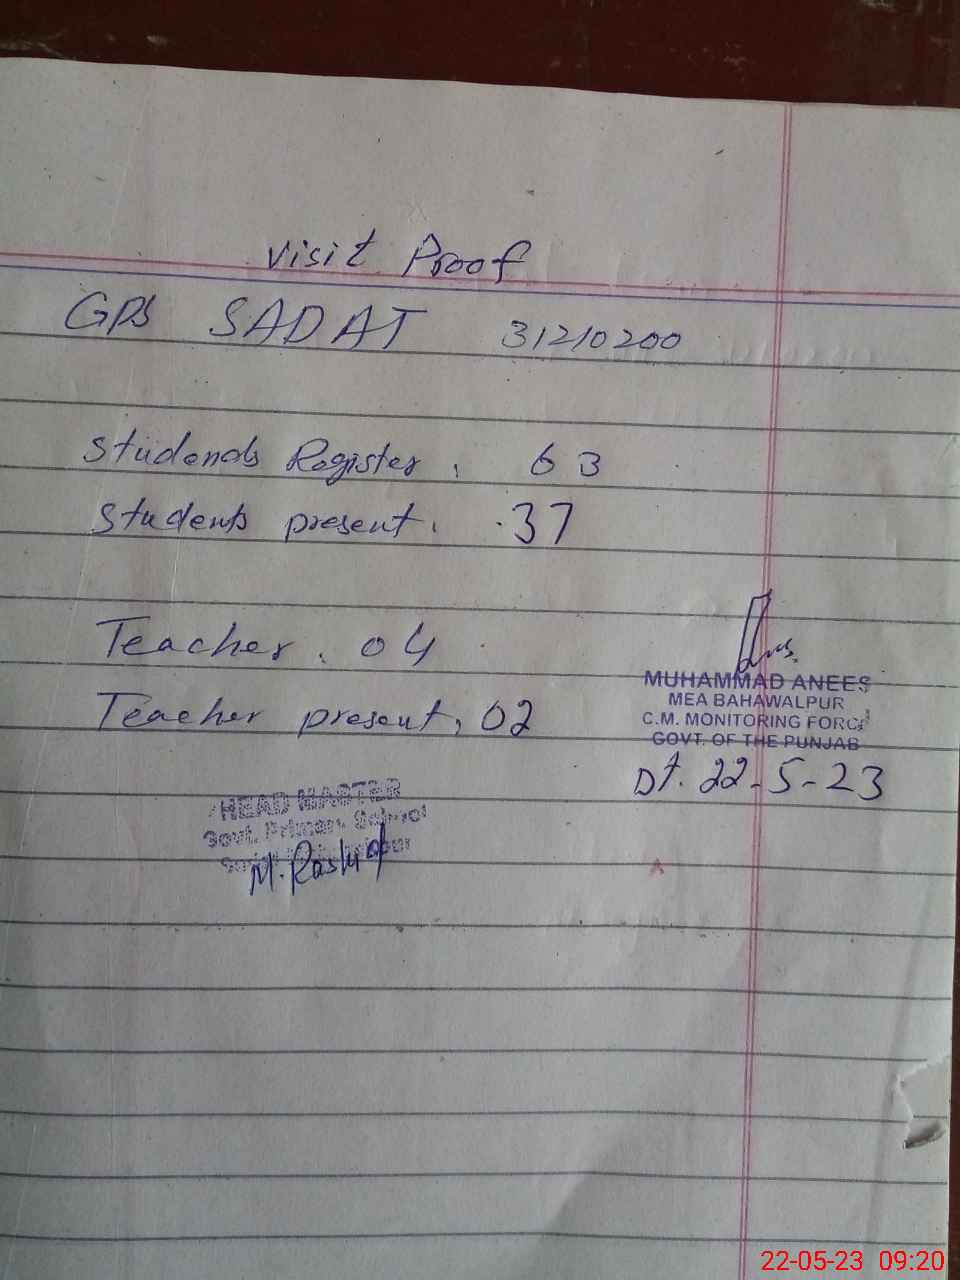 visit Proof
GPS SADAT 31210200
Students Register. 63
Students present. 37
Teacher. 04
Teacher present, 02
MUHAMMAD ANEES
MEA BAHAWALPUR
C.M. MONITORING FORCE
GOVT. OF THE PUNJAB
Dt. 22-5-23
HEAD MASTER
Govt. Primary School
M. Rashid
22-05-23 09:20